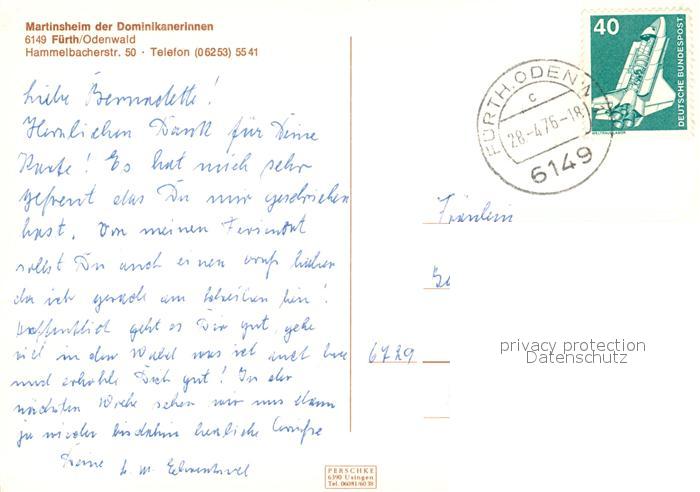 Martinsheim der Dominikanerinnen
6149 Fürth/Odenwald
Hammelbacherstr. 50 · Telefon (06253) 5541
Liebe Bernadette!
Herzlichen Dank für Deine
Karte! Es hat mich sehr
gefreut das Du mir geschrieben
hast. Von meinen Ferienort
sollst Du auch einen Gruß haben
da ich gerade am schreiben bin!
Hoffentlich geht es Dir gut, gehe
viel in den Wald was ich auch tue
und erhole Dich gut! In der
nächsten Woche sehen wir uns dann
ja wieder bis dahin herzliche Grüße
Deine
40
DEUTSCHE BUNDESPOST
FÜRTH, ODENW
c
28.-4.76-18
6149
Fräulein
6729
privacy protection
Datenschutz
PERSCHKE
6390 Usingen
Tel. 06081/6038